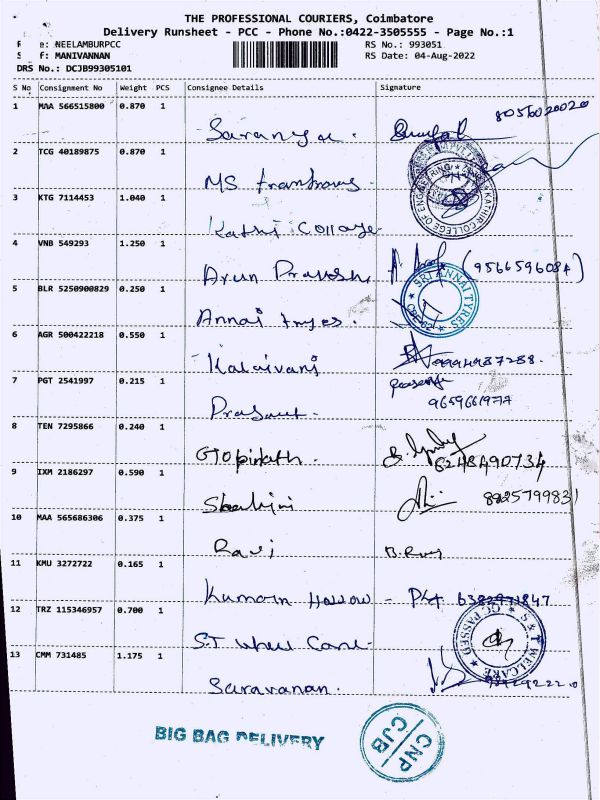 THE PROFESSIONAL COURIERS, Coimbatore
Delivery Runsheet - PCC - Phone No.:0422-3505555 - Page No.:1
e: NEELAMBURPCC
RS No.: 993051
f: MANIVANNAN
RS Date: 04-Aug-2022
DRS No.: DCJB99305101
S No Consignment No Weight PCS Consignee Details Signature
1 MAA 566515800 0.870 1
8056020020
Saranya.
2 TCG 40189875 0.870 1
MS
3 KTG 7114453 1.040 1
KATHIR COLLEGE OF ENGINEERING
Kathi College
4 VNB 549293 1.250 1
Arun Prakash (9566596084)
5 BLR 5250900829 0.250 1
SRI ANNAI TYRES
CBE-62
Annai tyres.
6 AGR 500422218 0.550 1
Kalaivani 9994987288.
7 PGT 2541997 0.215 1
9659661977
Prasant.
8 TEN 7295866 0.240 1
Gopinath. 8248490734
9 IXM 2186297 0.590 1
Shalini 8825799831
10 MAA 565686306 0.375 1
Ravi
11 KMU 3272722 0.165 1
Kumaran 6382971847
12 TRZ 115346957 0.700 1
S.T Wheel Care
S & T WELCARE
GC PASSED
13 CMM 731485 1.175 1
Saravanan.
BIG BAG DELIVERY
CNP
CJB